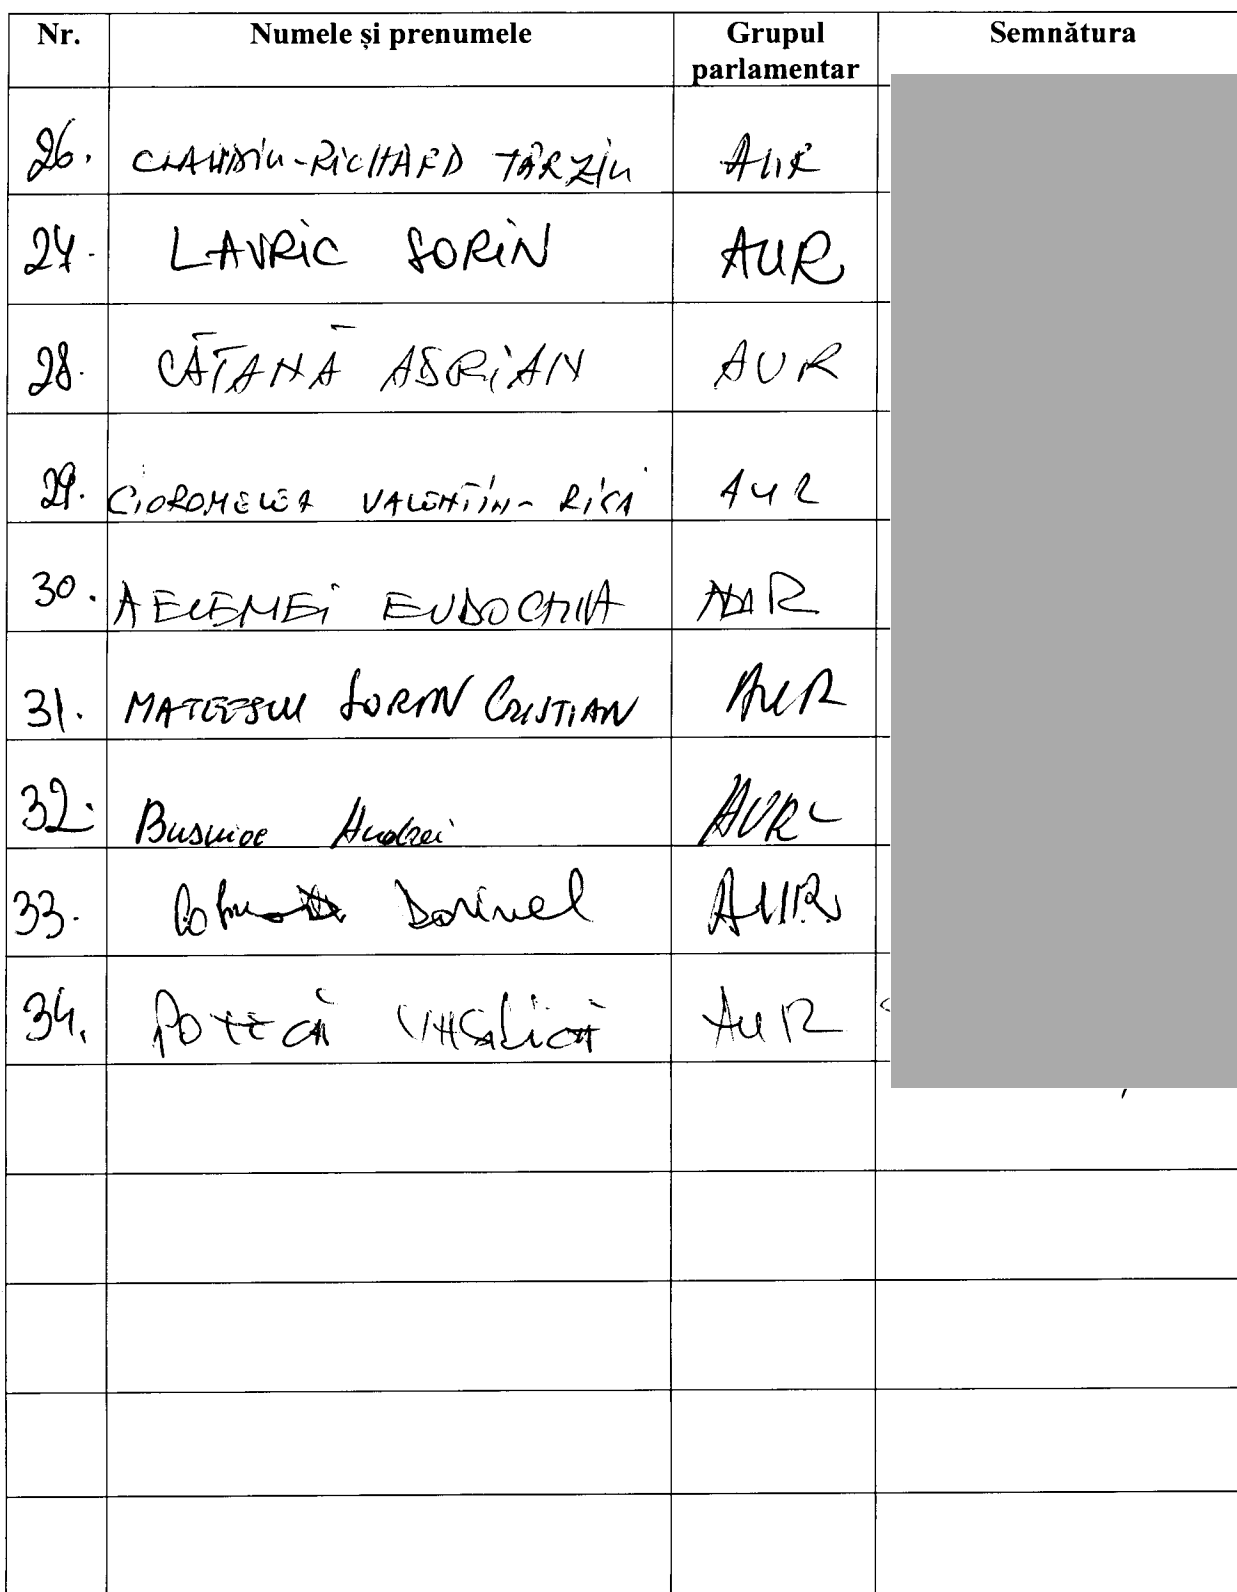 Nr. Numele și prenumele Grupul parlamentar Semnătura
26. CLAUDIU-RICHARD TÂRZIU AUR
27. LAVRIC SORIN AUR
28. CĂTANĂ ADRIAN AUR
29. CIOROMELEA VALENTIN-RICA AUR
30. AELENEI EUDOCHIA AUR
31. MATEESCU SORIN CRISTIAN AUR
32. Busuioc Andrei AUR
33. Dorinel AUR
34. POTECĂ VASILICĂ AUR